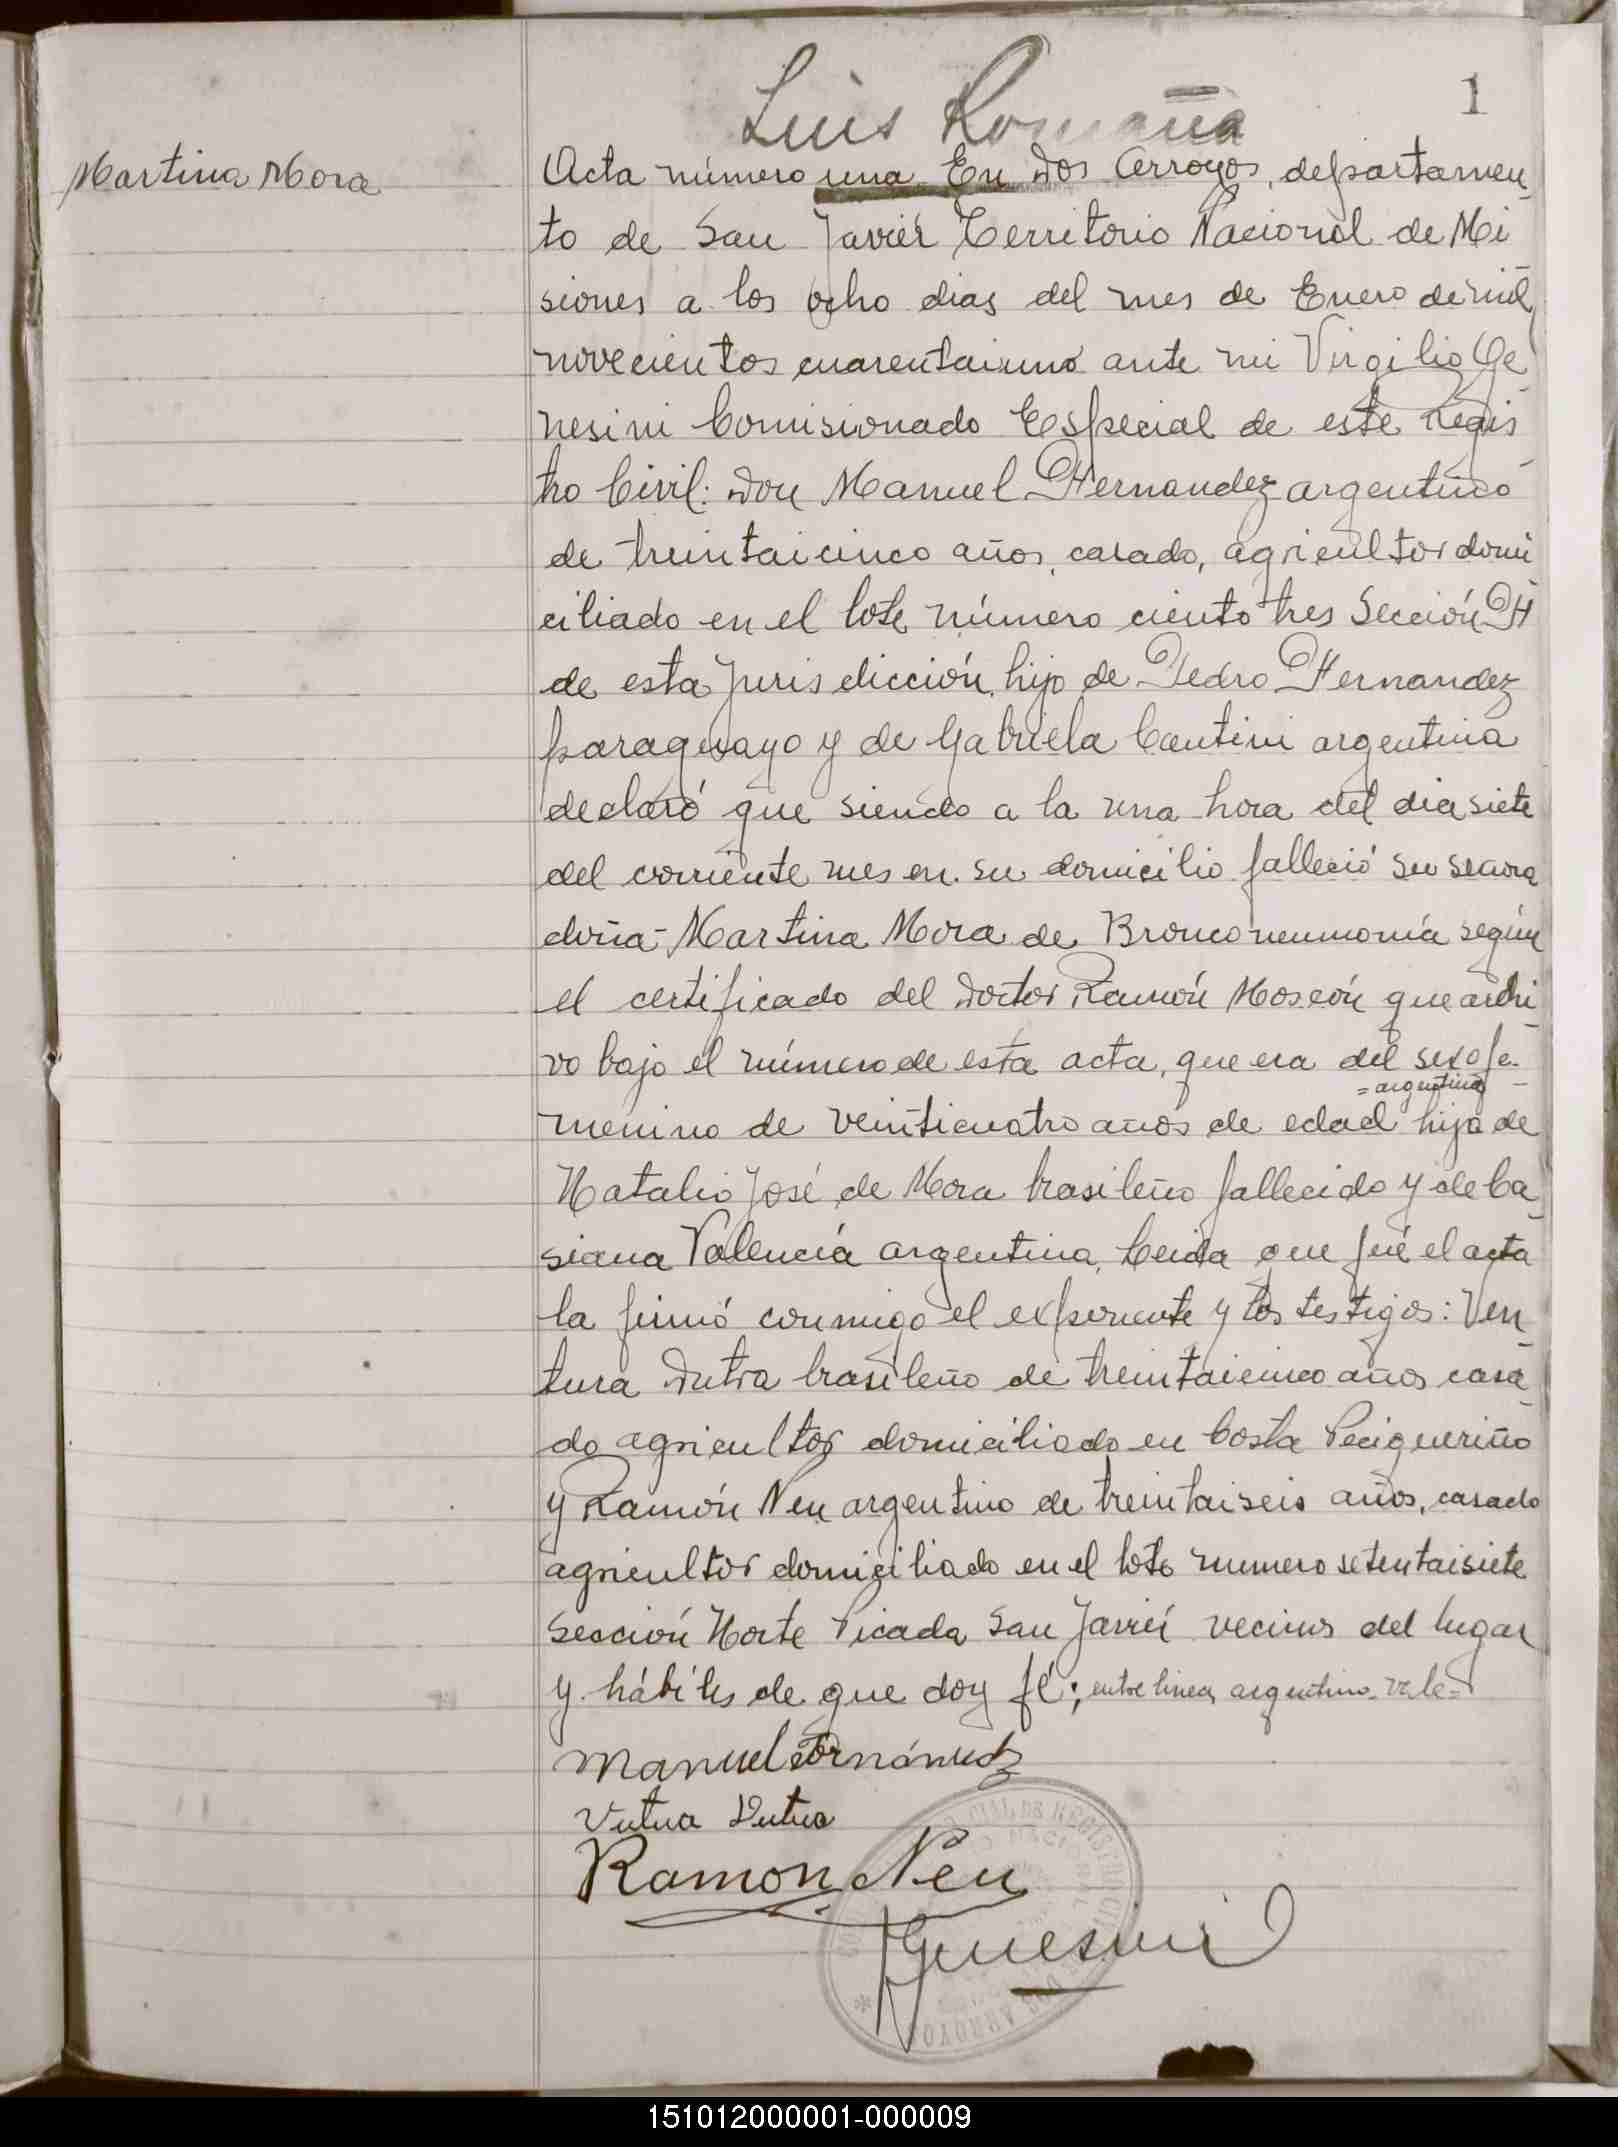 Luis Romaña
1
Martina Mora
Acta número una En Dos Arroyos, departamen
to de San Javier Territorio Nacional de Mi
siones a los ocho dias del mes de Enero de mil
novecientos cuarentaiuno ante mi Virgilio Ge
nesini Comisionado Especial de este Regis
tro Civil: Don Manuel Hernandez argentino
de treintaicinco años, casado, agricultor domi
ciliado en el lote número ciento tres Sección H
de esta jurisdicción, hijo de Pedro Hernandez
paraguayo y de Gabriela Cantini argentina
declaró que siendo a la una hora del dia siete
del corriente mes en su domicilio falleció su señora
doña Martina Mora de Bronconeumonía según
el certificado del Doctor Ramón Moscón que archi
vo bajo el número de esta acta, que era del sexo fe-
= argentina
menino de veinticuatro años de edad hija de
Natalio José de Mora brasileño fallecido y de Ca
siana Valencia argentina. Leida que fué el acta
la firmó conmigo el exponente y los testigos: Ven
tura Dutra brasileño de treintaicinco años casa
do agricultor domiciliado en Costa Pecigueriño
y Ramón Neu argentino de treintaiseis años, casado
agricultor domiciliado en el lote numero setentaisiete
sección Norte Picada San Javier vecinos del lugar
y hábiles de que doy fé; entre linea, argentina - vale =
Manuel Ernández
Vutua Dutua
Ramon Neu
Genesini
151012000001-000009